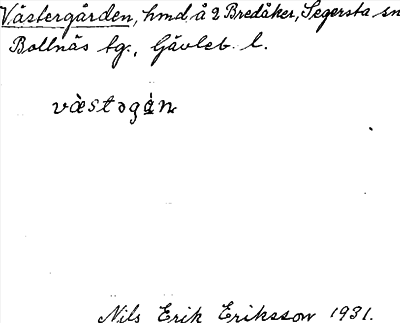 Västergården, hmd å 2 Bredåker, Segersta sn
Bollnäs tg., Gävleb. l.
västəgán
Nils Erik Eriksson 1931.